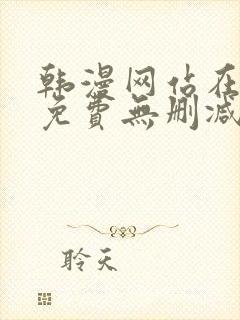 韩漫网站在
免費無删减
聆天